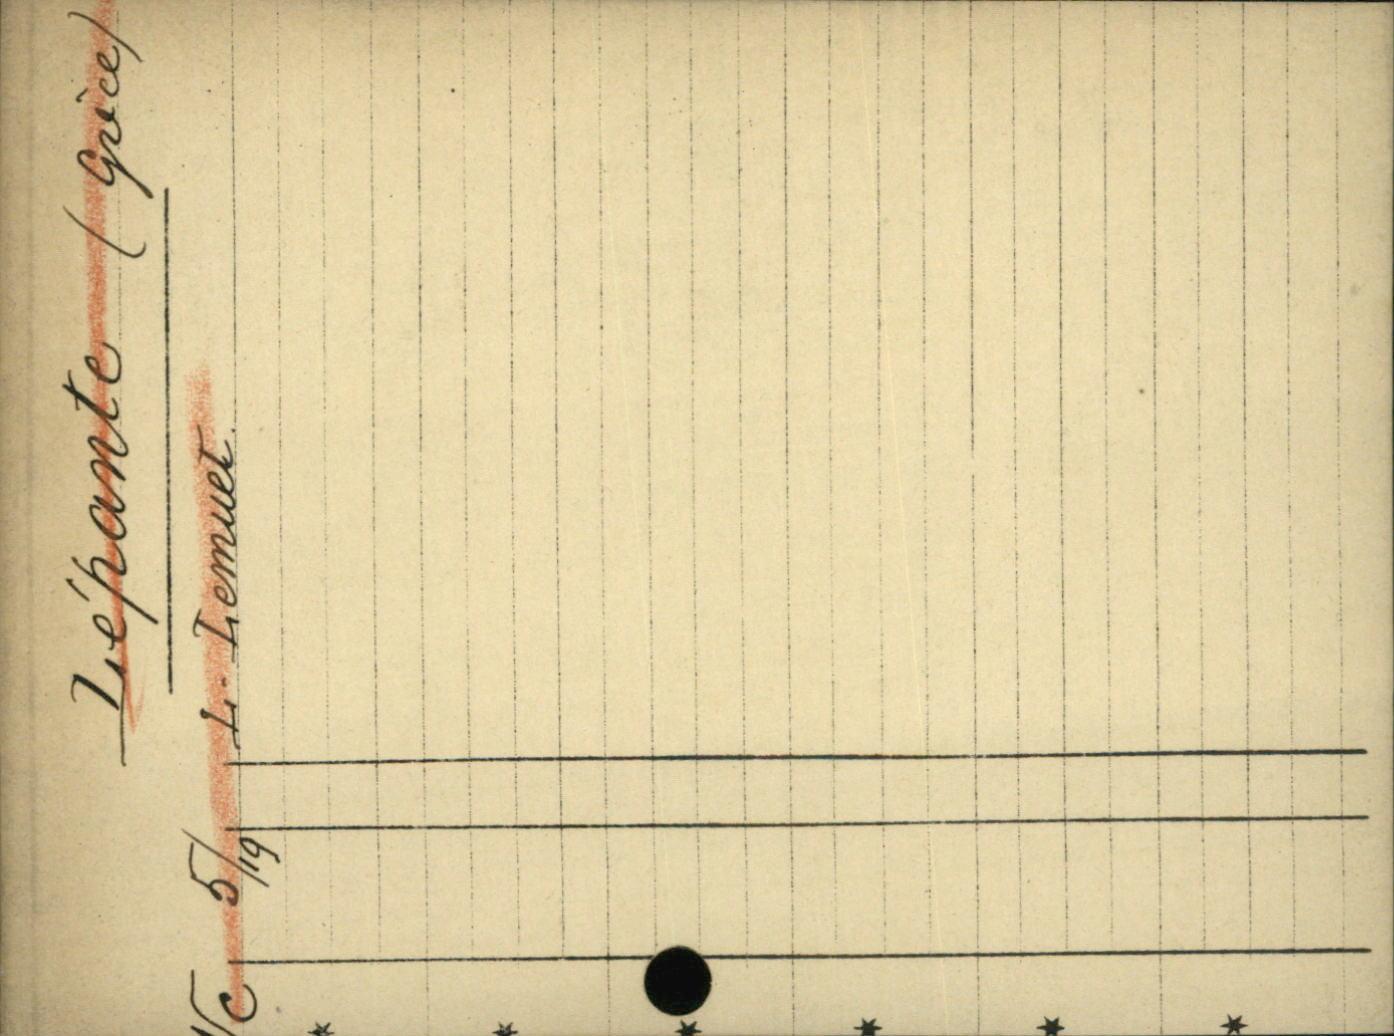 Lépante (Grèce)
C 5/19 L. Lemuet.